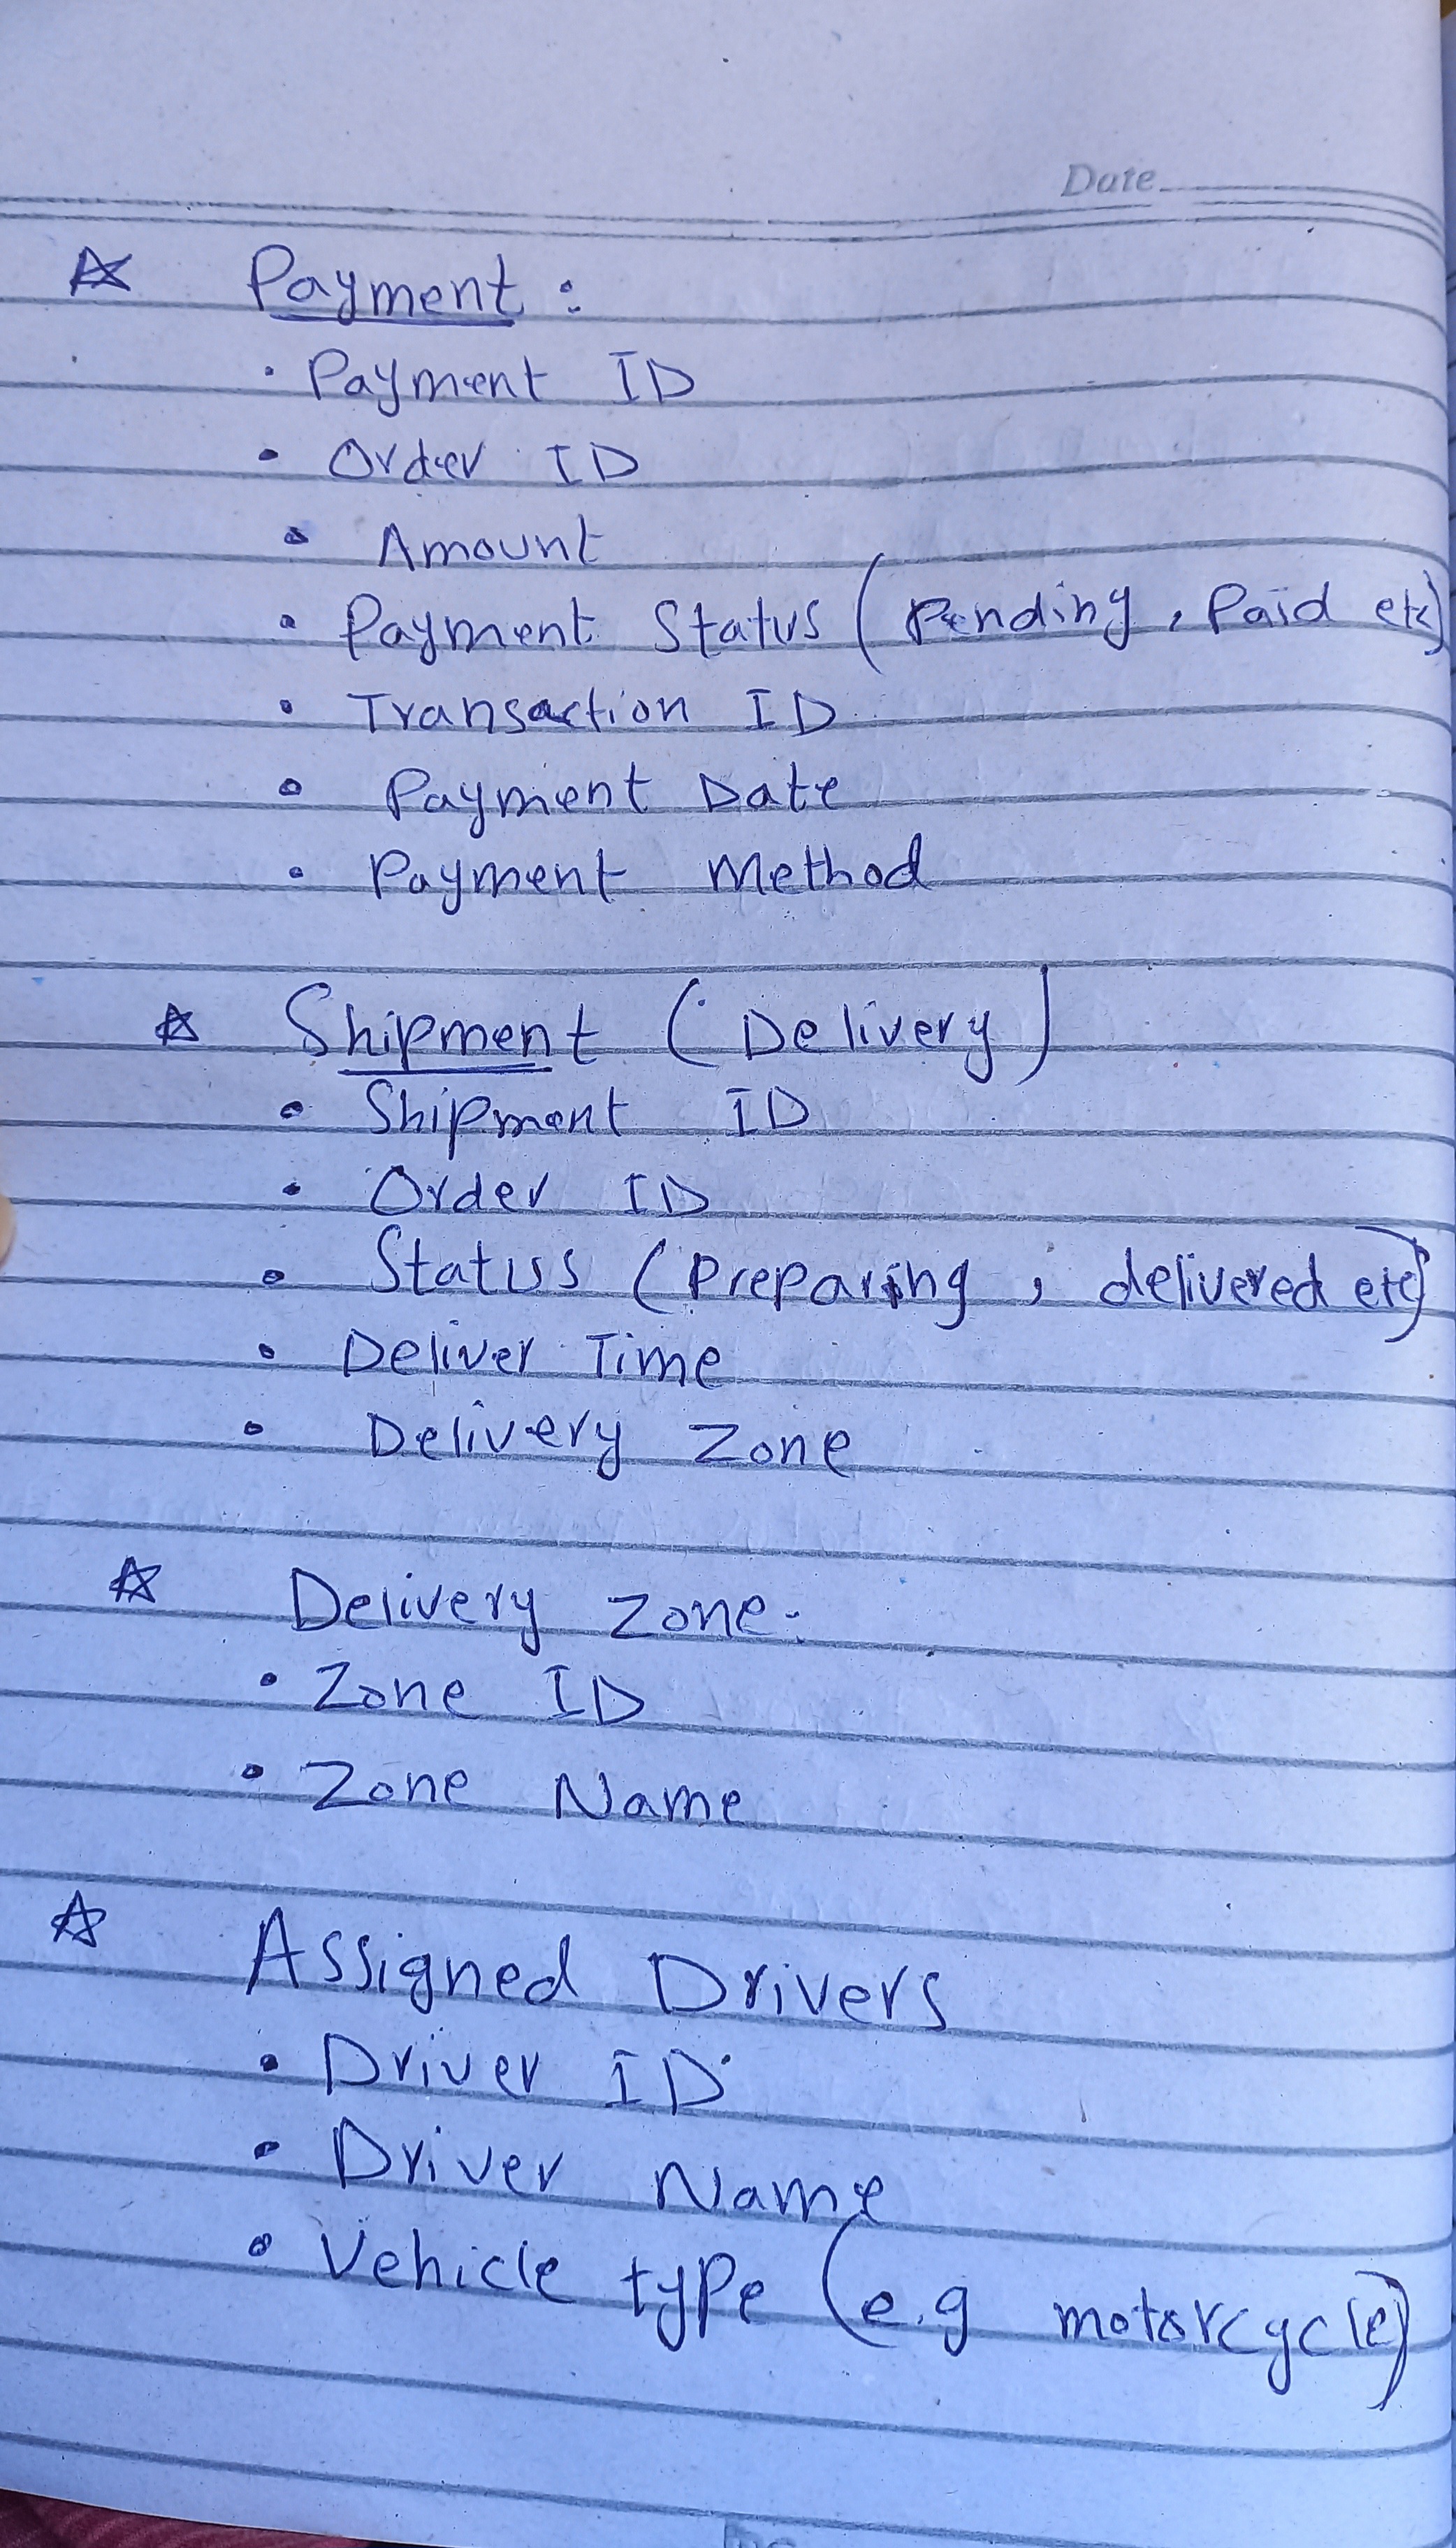 Date
☆ Payment :
• Payment ID
• Order ID
• Amount
• Payment Status (Pending, Paid etc)
• Transaction ID
• Payment Date
• Payment Method
☆ Shipment (Delivery)
• Shipment ID
• Order ID
• Status (Preparing, delivered etc)
• Deliver Time
• Delivery Zone
☆ Delivery Zone:
• Zone ID
• Zone Name
☆ Assigned Drivers
• Driver ID
• Driver Name
• Vehicle type (e.g motorcycle)